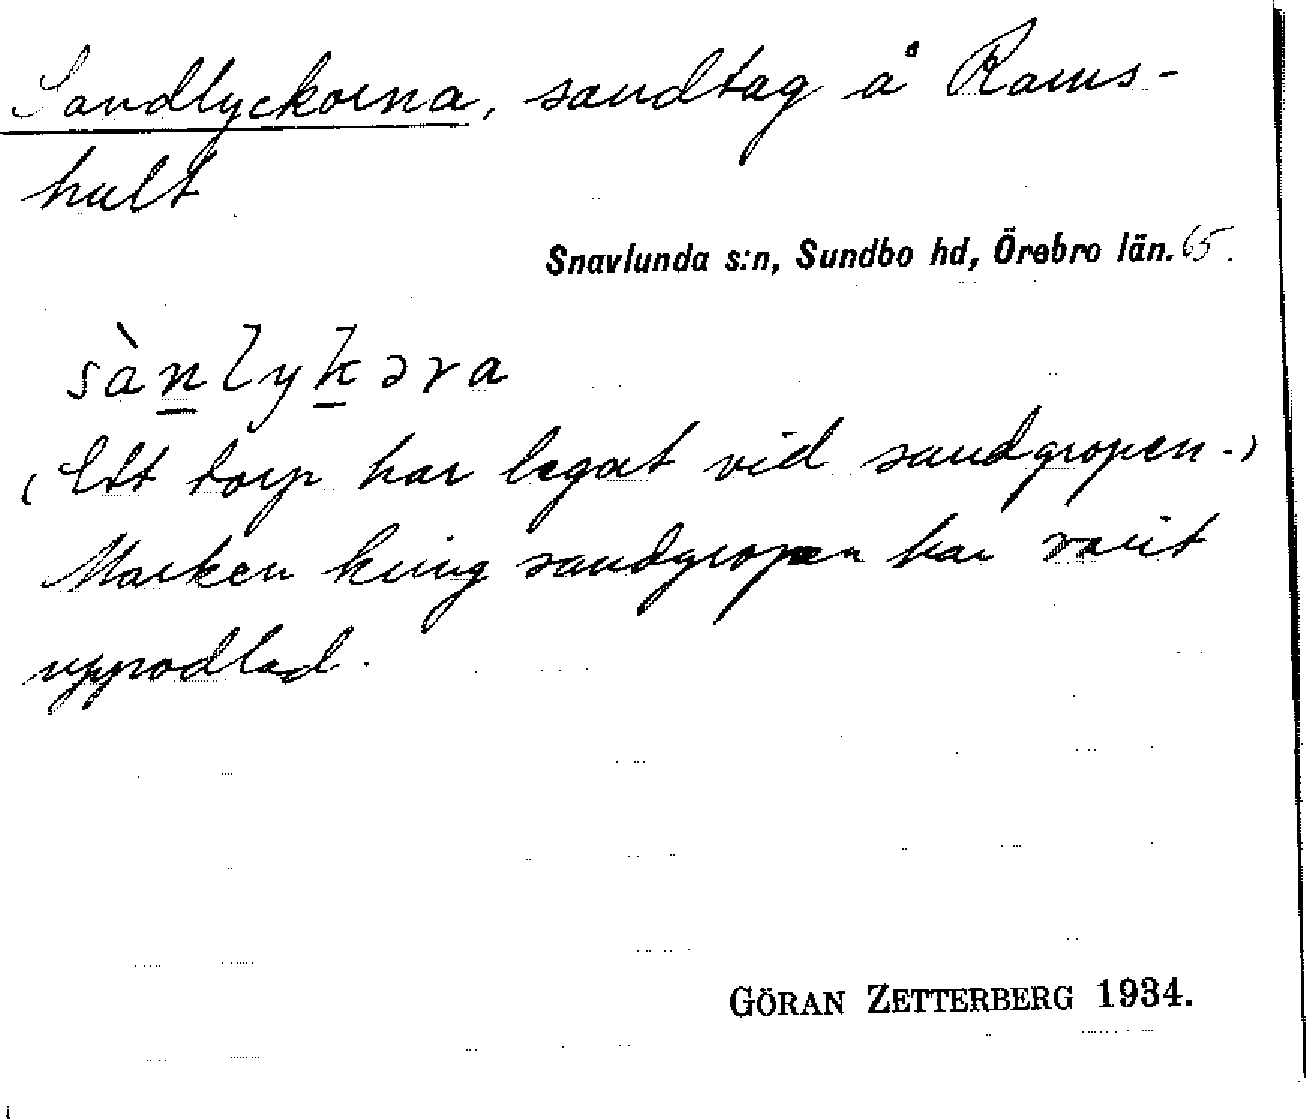 Sandlyckorna, sandtag å Rams-
hult
Snavlunda s:n, Sundbo hd, Örebro län. 65.
sànlykəra
(Ett torp har legat vid sandgropen.)
Marken kring sandgropen har varit
uppodlad.
GÖRAN ZETTERBERG 1934.